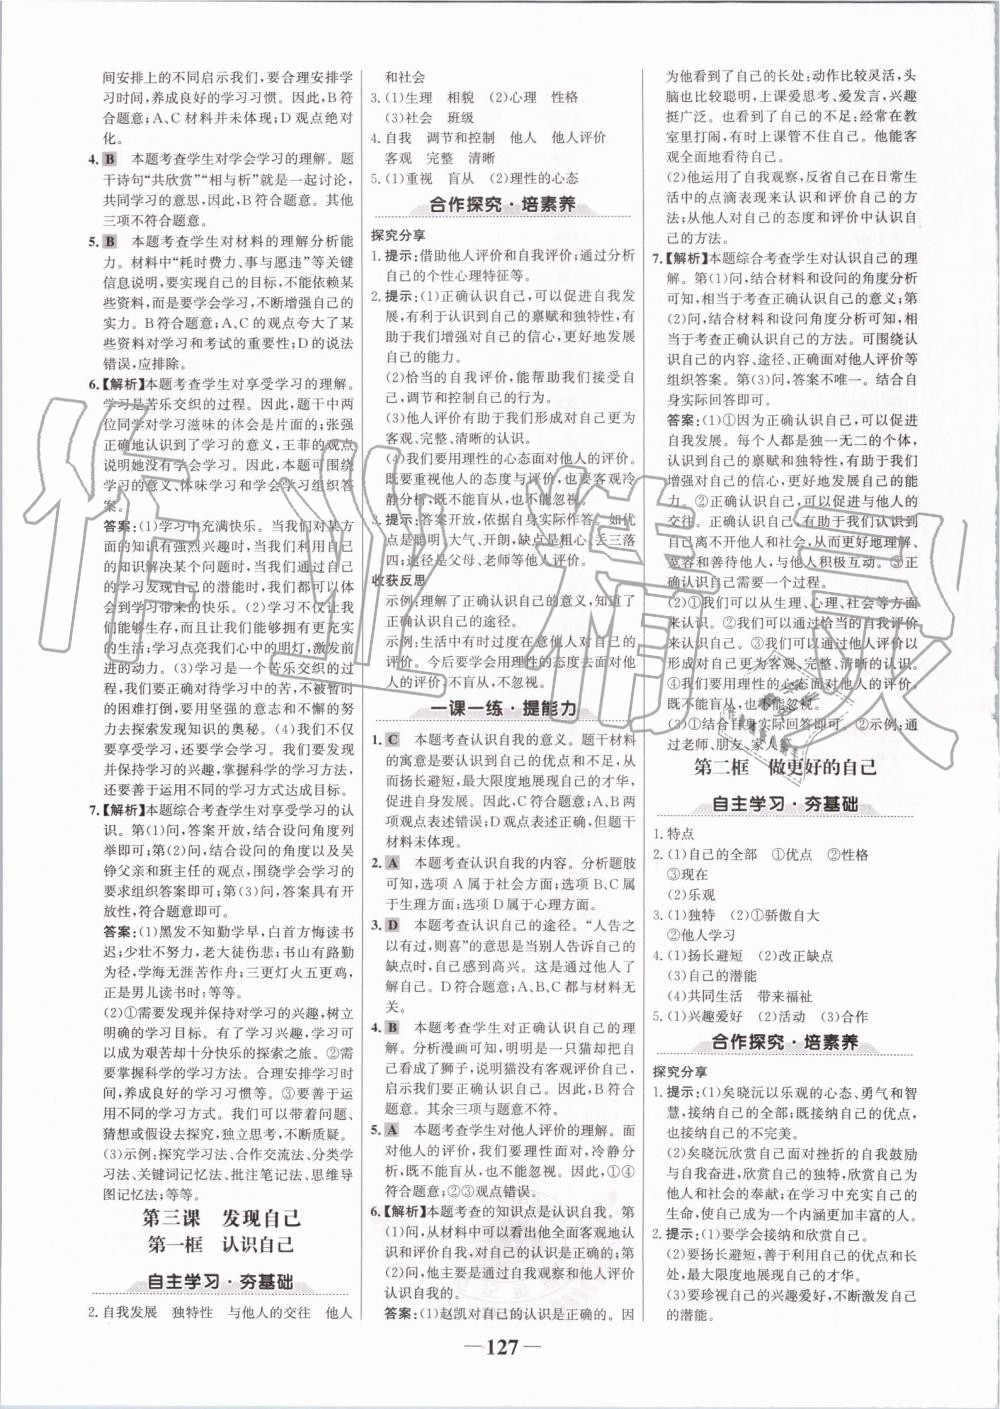 间安排上的不同启示我们,要合理安排学
习时间,养成良好的学习习惯。因此,B符
合题意;A、C材料并未体现;D观点绝对
化。
4. B 本题考查学生对学会学习的理解。题
干诗句“共欣赏”“相与析”就是一起讨论,
共同学习的意思,因此,B符合题意。其他
三项不符合题意。
5. B 本题考查学生对材料的理解分析能
力。材料中“耗时费力、事与愿违”等关键
信息说明,要实现自己的目标,不能依赖某
些资料,而是要学会学习,不断增强自己的
实力。B符合题意;A、C的观点夸大了某
些资料对学习和考试的重要性;D的说法
错误,应排除。
6.【解析】本题考查学生对享受学习的理解。
学习是苦乐交织的过程。因此,题干中两
位同学对学习滋味的体会是片面的;张强
正确地认识到了学习的意义,王菲的观点
说明她没有学会学习。因此,本题可围绕
学习的意义、体味学习和学会学习组织答
案。
答案:(1)学习中充满快乐。当我们对某方
面的知识有强烈兴趣时,当我们利用自己
的知识解决某个问题时,当我们通过自己
的学习发现自己的潜能时,我们都可以体
会到学习带来的快乐。(2)学习不仅让我们
能够生存,而且让我们能够拥有更充实
的生活;学习点亮我们心中的明灯,激发前
进的动力。(3)学习是一个苦乐交织的过
程,我们要正确对待学习中的苦,不被其中
的困难打倒,要用坚强的意志和不懈的努
力去探索发现知识的奥秘。(4)我们不仅
要学习,更要学会学习。我们要发现
并保持学习的兴趣,掌握科学的学习方法,
还要善于运用不同的学习方式达成目标。
7.【解析】本题综合考查学生对享受学习的认
识。第(1)问,答案开放,结合设问角度列
举即可;第(2)问,结合设问的角度以及吴
铮父亲和班主任的观点,围绕学会学习的
要求组织答案即可;第(3)问,答案具有开
放性,符合题意即可。
答案:(1)黑发不知勤学早,白首方悔读书
迟;少壮不努力,老大徒伤悲;书山有路勤
为径,学海无涯苦作舟;三更灯火五更鸡,
正是男儿读书时;等等。
(2)①需要发现并保持对学习的兴趣,树立
明确的学习目标。有了学习兴趣,学习可以
成为艰苦却十分快乐的探索之旅。②需
要掌握科学的学习方法。合理安排学习时
间,养成良好的学习习惯等。③要善于运
用不同的学习方式。我们可以带着问题、
猜想或假设去探究,独立思考,寻找结果。
(3)示例:探究学习法、合作交流法、分类学
习法、关键词记忆法、批注笔记法、思维导
图记忆法;等等。
第三课 发现自己
第一框 认识自己
自主学习·夯基础
2. 自我发展 独特性 与他人的交往 他人
和社会
3. (1)生理 相貌 (2)心理 性格
(3)社会 班级
4. 自我 调节和控制 他人 他人评价
客观 完整 清晰
5. (1)重视 盲从 (2)理性的心态
合作探究·培素养
探究分享
1. 提示:借助他人评价和自我评价;通过分析
自己的个性心理特征等。
2. 提示:(1)正确认识自己,可以促进自我发
展,有利于认识到自己的禀赋和独特性,有
助于我们增强对自己的信心,更好地发展自
己的能力。
(2)恰当的自我评价,能帮助我们接受自
己,调节和控制自己的行为。
(3)他人评价有助于我们形成对自己更为
客观、完整、清晰的认识。
(4)我们要用理性的心态面对他人的评价。
既要重视他人的态度与评价,也要客观冷
静分析;既不能盲从,也不能忽视。
3. 提示:答案开放,依据自身实际作答。如优
点是聪明、大气、开朗,缺点是粗心、丢三落
四;途径是父母、老师等他人评价。
收获反思
示例:理解了正确认识自己的意义,知道了
认识自己的途径。
示例:生活中有时过度在意他人对自己的
评价。今后要学会用理性的态度去面对他
人的评价,不盲从,不忽视。
一课一练·提能力
1. C 本题考查认识自我的意义。题干材料
的寓意是要认识到自己的优点和不足,从而
扬长避短,最大限度地展现自己的才华,
促进自身发展。因此,C符合题意;A、B两
项观点表述错误;D表述正确,但是题干
材料未体现。
2. A 本题考查认识自我的内容。分析题肢
可知,选项A属于社会方面;选项B、C属
于生理方面;选项D属于心理方面。
3. D 本题考查认识自己的途径。“人告之
以有过,则喜”的意思是当别人告诉自己的
缺点时,自己感到高兴。这是通过他人评价
了解自己。D符合题意;A、B、C都与材料无
关。
4. B 本题考查学生对正确认识自己的理
解。分析漫画可知,明明是一只猫却把自
己看成了狮子,说明猫没有客观评价自己,
启示我们要正确认识自己。因此,B符合
题意。其余三项与题意不符。
5. A 本题考查学生对他人评价的理解。面
对他人的评价,我们要理性面对,冷静分
析,既不能盲从,也不能忽视。因此,①④
符合题意;②③观点错误。
6.【解析】本题考查的知识点是认识自我。第
(1)问,从材料中可以看出他全面客观地认
识和评价自我,对自己的认识是正确的。第
(2)问,他主要是通过自我观察和他人评价
认识自我的。
答案:(1)赵凯对自己的认识是正确的。因
为他看到了自己的长处:动作比较灵活,头
脑也比较聪明,上课爱思考、爱发言,兴趣
挺广泛。也看到了自己的不足:经常在教
室里打闹,有时上课管不住自己。他能客
观全面地看待自己。
(2)他运用了自我观察,反省自己在日常生
活中的点滴表现来认识和评价自己的方
法;从他人对自己的态度和评价中认识自
己的方法。
7.【解析】本题综合考查学生对认识自己的理
解。第(1)问,结合材料和设问的角度分析
可知,相当于考查正确认识自己的意义;第
(2)问,结合材料和设问角度分析可知,相
当于考查正确认识自己的方法。可围绕认
识自己的内容、途径、正确面对他人评价等
组织答案。第(3)问,答案不唯一。结合自
身实际回答即可。
答案:(1)①因为正确认识自己,可以促进
自我发展。每个人都是独一无二的个体,
认识到自己的禀赋和独特性,有助于我们
增强对自己的信心,更好地发展自己的能
力。②正确认识自己,可以促进与他人的
交往。只有正确认识自己,我们才能认识到
自己离不开他人和社会,从而更好地理解、
宽容和善待他人,与他人积极互动。③正
确认识自己是一个不断发展的过程,需要
(2)①我们可以从生理、心理、社会等方面
来认识自己。②我们可以通过恰当的自我
评价来认识自己。③我们可以通过他人评价以
形成对自己更为客观、完整、清晰的认识。
④我们要用理性的心态面对他人的评价,
既不能盲从,也不能忽视。
(3)①结合自身实际回答即可。②示例:通
过老师、朋友、家人等。
第二框 做更好的自己
自主学习·夯基础
1. 特点
2. (1)自己的全部 ①优点 ②性格
③现在
(2)乐观
3. (1)独特 (2)①骄傲自大
②他人学习
4. (1)扬长避短 (2)改正缺点
(3)自己的潜能
(4)共同生活 带来福祉
5. (1)兴趣爱好 (2)活动 (3)合作
合作探究·培素养
探究分享
1. 提示:(1)矣晓沅以乐观的心态、勇气和智
慧,接纳自己的全部;既接纳自己的优点,
也接纳自己的不完美。
(2)矣晓沅欣赏自己面对挫折的自我鼓励
与自我奋进,欣赏自己的独特,欣赏自己为
他人和社会的奉献;在学习中充实自己的
生命,成为一个内涵更加丰富的人。
2. 提示:(1)要学会接纳和欣赏自己。
(2)要扬长避短,善于利用自己的优点和长
处,最大限度地展现自己的才华。
(3)要珍视自己的兴趣爱好,不断激发自己
的潜能。
— 127 —
作业精灵